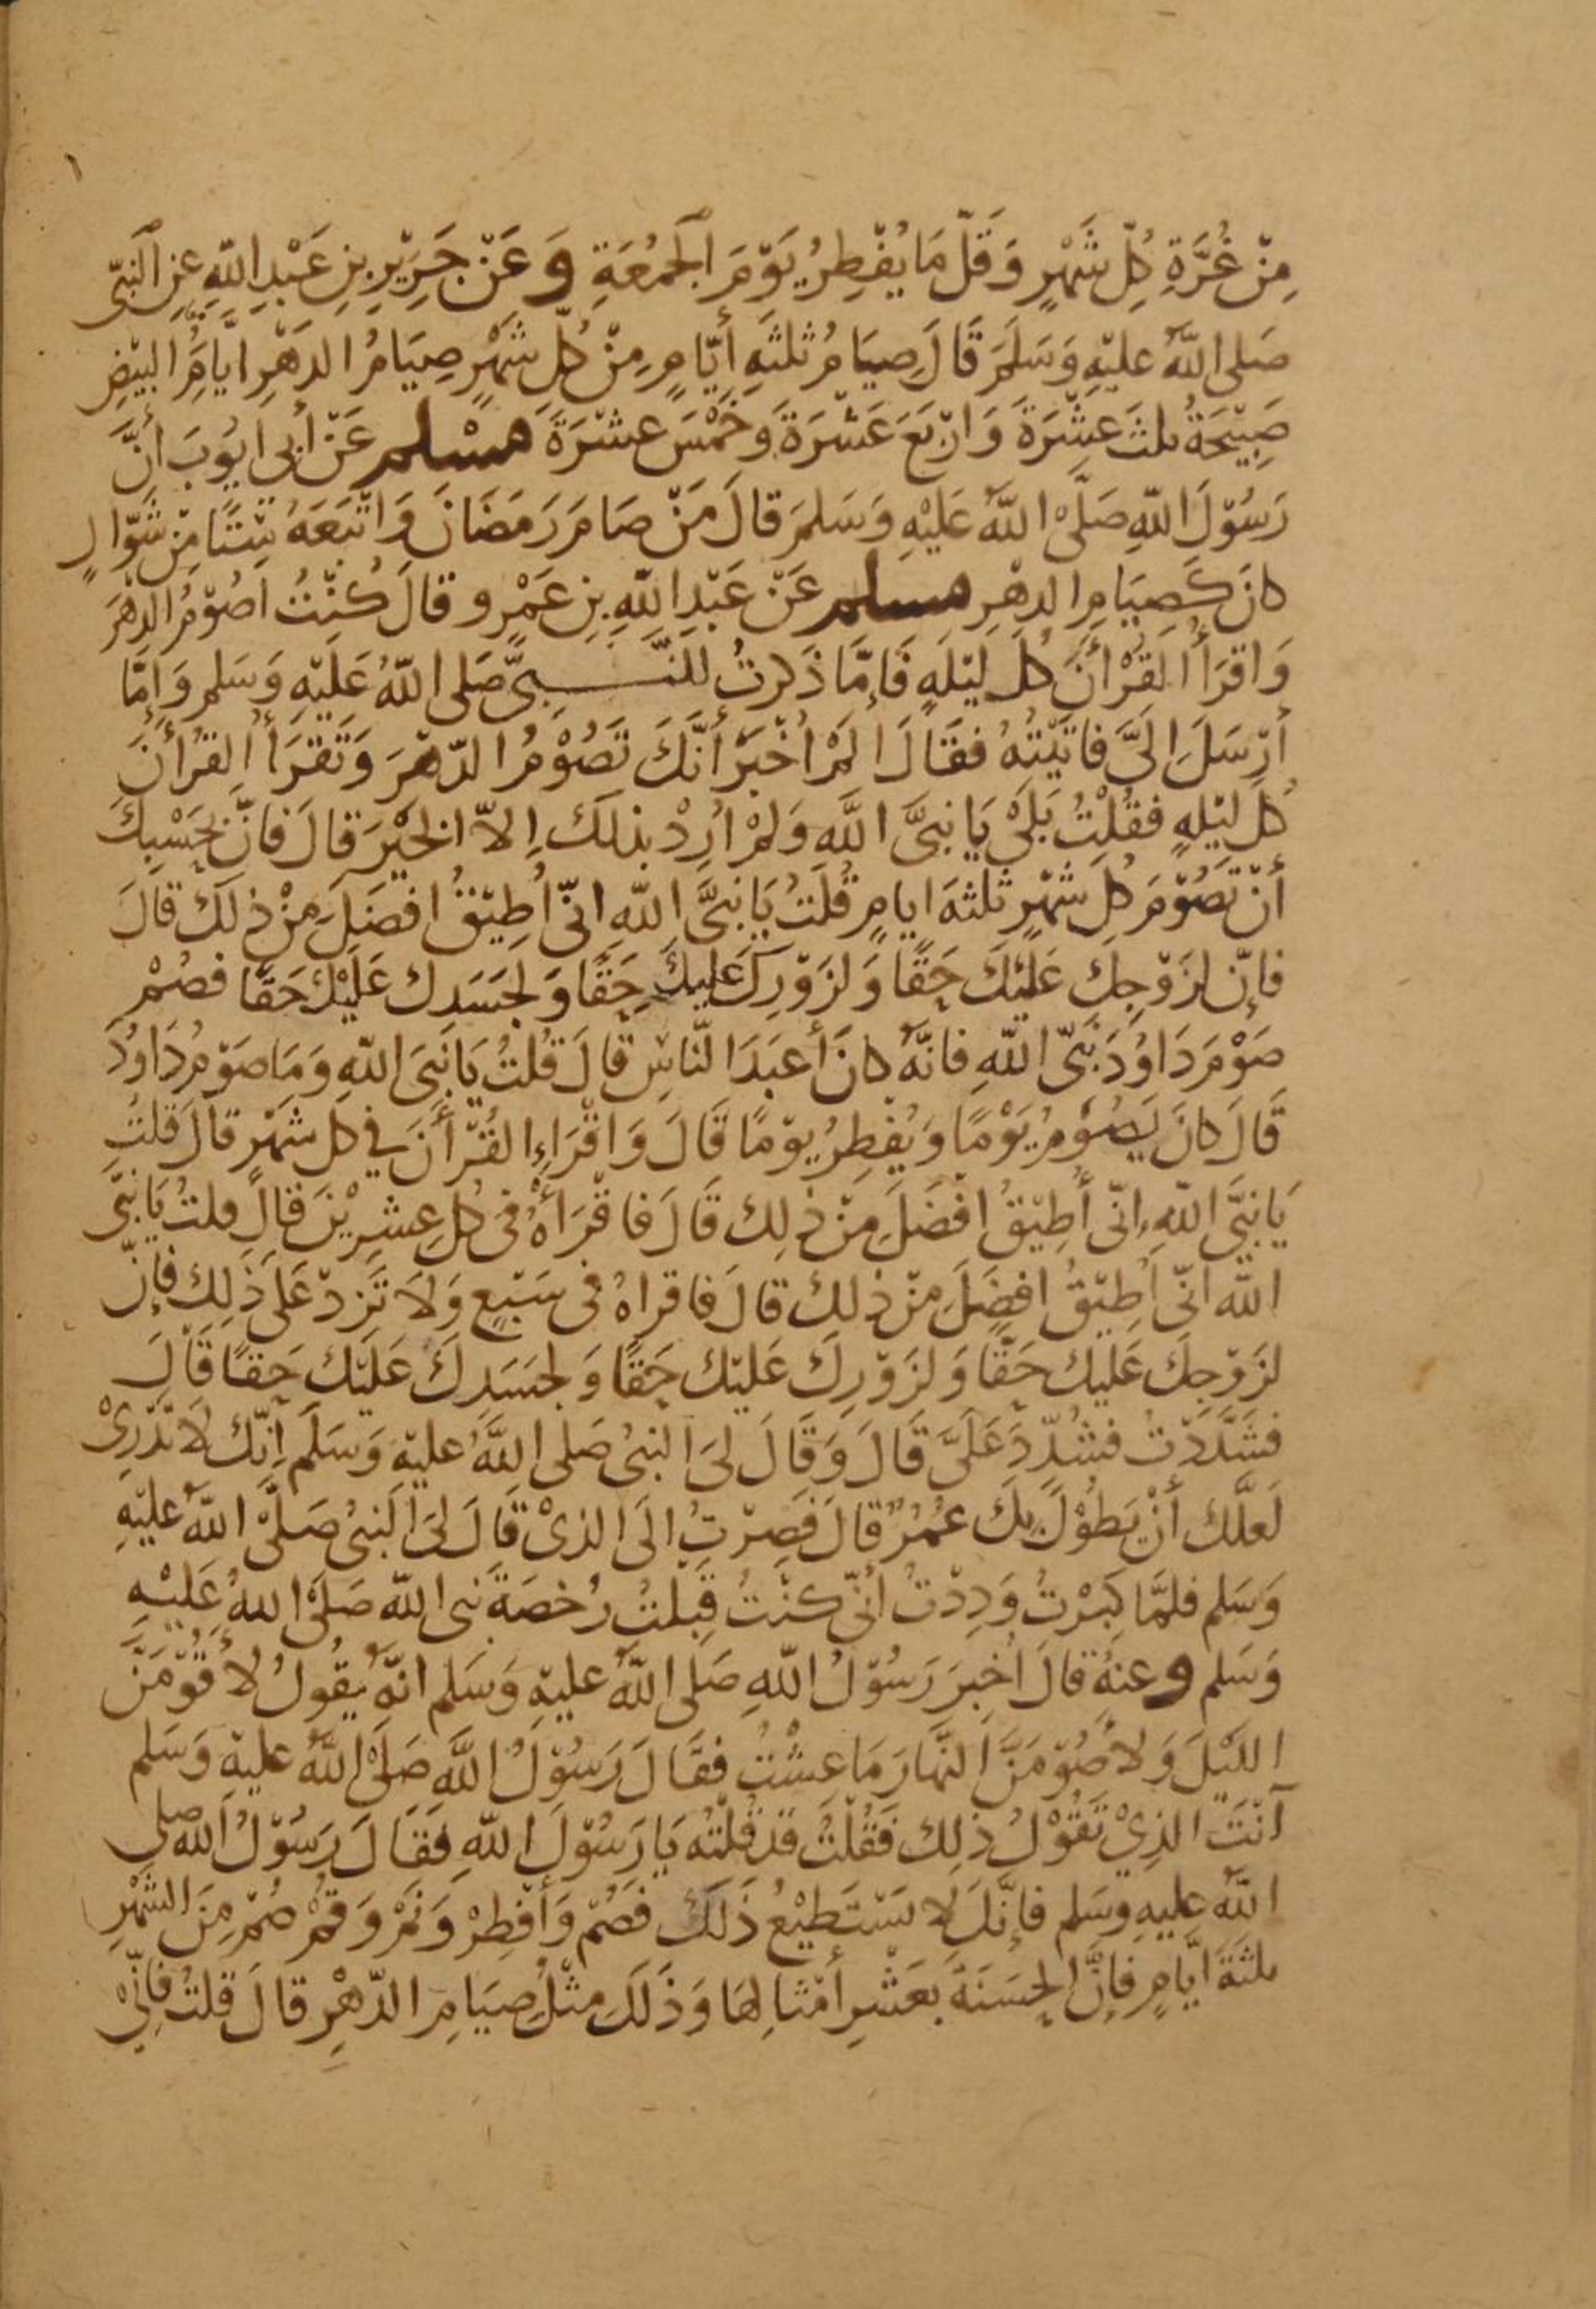 مِنْ غُرَّةِ كُلِّ شَهْرٍ وَقَلَّ مَا يُفْطِرُ يَوْمَ الْجُمُعَةِ وَعَنْ جَرِيْرِ بْنِ عَبْدِ اللّٰهِ عَنِ النَّبِيِّ
صَلى اللّٰهُ عليْهِ وَسَلَّمَ قَالَ صِيَامُ ثلثَةِ أَيَّامٍ مِنْ كُلِّ شَهْرٍ صِيَامُ الدَهْرِ ايَّامُ البيْضِ
صَبِيْحَةُ ثلثَ عَشْرَةَ وَارْبَعَ عَشْرَةَ وَخَمْسَ عشْرَةَ مسْلم عَنْ أبى ايُوبَ أَنَّ
رَسُوْلَ اللّٰهِ صَلَّى اللّٰهُ عَلَيْهِ وَسَلمَ قالَ مَنْ صَامَ رَمَضَانَ وَاتْبَعَهُ سِتًّا مِنْ شَوَّالٍ
كانَ كَصِيَامِ الدهْرِ مسلم عَنْ عَبْدِ اللّٰهِ بْنِ عَمْرو قالَ كُنْتُ اصُوْمُ الدهْرَ
وَاقرَأُ القُرْأنَ كُلَ ليْلَةٍ فَإِمَّا ذَكرتُ للنَّبِىِّ صَلى اللّٰهُ عَلَيْهِ وَسَلم وَإِمَّا
أرْسَلَ إِلىَّ فاتَيْتُهُ فقَالَ المْ اُخْبَرْ أنَّكَ تَصُوْمُ الدّهْرَ وَتَقرَأُ القُرْأنَ
كُلَ ليْلةٍ فقُلتُ بَلىْ يَا نبىَّ اللَّهِ وَلمْ ارِدْ بذلكَ إِلاّ الخَيْرَ قالَ فانَّ بحَسْبِكَ
أنْ تَصُوْمَ كُلَ شهْرٍ ثلثَةَ ايامٍ قُلتُ يَا نبىَّ اللّٰهِ انّى اُطِيْقُ افضَلَ مِنْ ذلكَ قالَ
فإنّ لزَوْجِكَ عَليْكَ حَقًا وَلزَوْرِكَ عَليكَ حَقًا وَلجَسَدِكَ عَليْكَ حَقًا فصُمْ
صَوْمَ دَاوُدَ نَبِىّ اللّٰهِ فانّهُ كانَ أعبَدَ النَّاسِ قالَ قُلتُ يَا نَبىَ اللّٰهِ وَمَا صَوْمُ دَاوُدَ
قَالَ كانَ يَصُوْمُ يَوْمًا وَيُفْطِرُ يوْمًا قَالَ وَاقْرَاءِ القُرْأنَ فى كل شهْرٍ قالَ قلتُ
يَا نبىَّ اللّٰهِ انّى أُطِيْقُ افْضَلَ مِنْ ذٰلِكَ قَالَ فاقْرَأْهُ فى كُلِ عِشرِيْنَ قالَ قلتُ يَا نبىَّ
اللّٰه انّى اُطِيْقُ افضَلَ مِنْ ذلكَ قالَ فاقراهُ فى سَبْعٍ وَلَا تَزِدْ عَلىَ ذٰلِكَ فإنّ
لزَوْجِكَ عَليكَ حَقًا وَلزَوْرِكَ عَليْكَ حَقًا وَلجَسَدِكَ عَليْكَ حَقًا قَالَ
فشَدَّدْتُ فشُدِّدَ عَلىَّ قَالَ وَقَالَ لىَ النبىُ صَلى اللّٰهُ عليْهِ وَسَلَّم اِنّكَ لَا تَدْرِىْ
لَعَلَّكَ أنْ يَطُوْلَ بِكَ عُمُرٌ قالَ فَصِرْتُ الَى الذىْ قَالَ لىَ النبىُ صَلَّى اللّٰهُ عليْهِ
وَسَلم فلمَّا كَبِرْتُ وَدِدْتُ أنّى كنْتُ قَبِلْتُ رُخصَةَ نبى اللّٰه صَلىَّ اللّٰهُ عَليْهِ
وَسَلم وعنهُ قالَ اُخبِرَ رَسُوْلُ اللّٰهِ صَلى اللّٰهُ عليْهِ وَسَلم انّهُ يقُولُ لأقُوْمَنَّ
الليْلَ وَلأصُوْمَنَّ النّهَارَ مَا عِشْتُ فقَالَ رَسُوْلُ اللَّهِ صَلىَّ اللّٰهُ عليْهِ وَسَلم
آنتَ الذِىْ تقُوْلُ ذٰلِكَ فَقُلْتُ قدْ قُلتُه يَا رَسُوْلَ اللّٰهِ فقَالَ رَسُوْلُ اللّٰه صلى
اللّٰهُ عليهِ وسَلم فإنَّكَ لا تسْتَطيْعُ ذَلكَ فصُمْ وَأفْطِرْ وَنَمْ وَقمْ صُمْ مِنَ الشهْرِ
ثلثةَ ايَّامٍ فإنَّ الحسَنةَ بعَشْرِ أمْثالِهَا وَذَلكَ مثْلُ صِيَامِ الدّهْرِ قالَ قلتُ فإنِّىْ